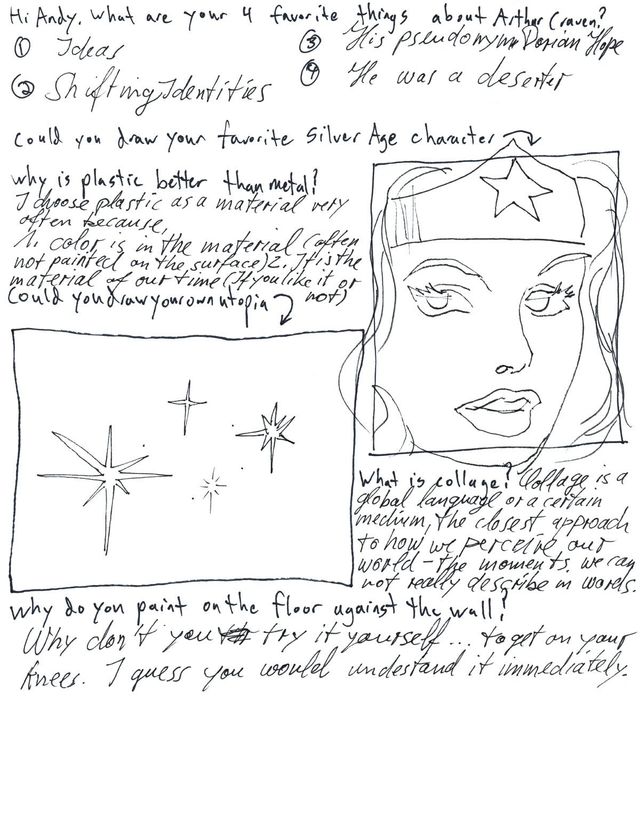 Hi Andy, What are your 4 favorite things about Arthur Craven?
① Ideas
② Shifting Identities
③ His pseudonym Dorian Hope
④ He was a deserter
Could you draw your favorite Silver Age character
why is plastic better than metal?
I choose plastic as a material very
often because,
1. color is in the material (often
not painted on the surface) 2. It is the
material of our time (If you like it or
not)
Could you draw your own utopia
What is collage? Collage is a
global language or a certain
medium, the closest approach
to how we perceive our
world - the moments we can
not really describe in words.
Why do you paint on the floor against the wall?
Why don't you try it yourself... to get on your
knees. I guess you would undestand it immediately.